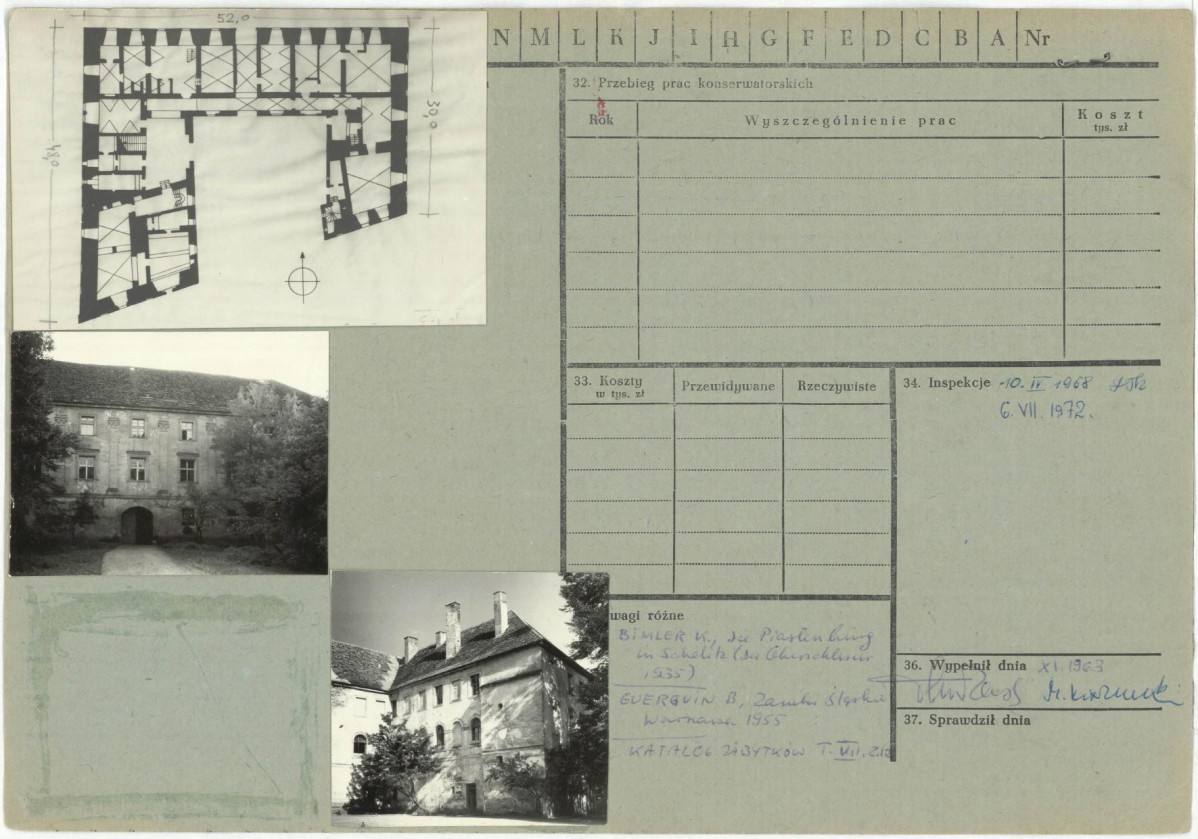 52,0
30,0
48,0
N M L K J I H G F E D C B A Nr
32. Przebieg prac konserwatorskich
Rok
Wyszczególnienie prac
Koszt
tys. zł
33. Koszty
w tys. zł
Przewidywane
Rzeczywiste
34. Inspekcje 10. IV 1968
6. VII. 1972.
wagi różne
BIMLER K., Die Piastenburg
in Schelitz (Der Oberschlesier
1935)
GUERQUIN B, Zamki Śląskie
Warszawa 1955
KATALOG ZABYTKÓW T. VII. Z.12
36. Wypełnił dnia XI. 1963
37. Sprawdził dnia